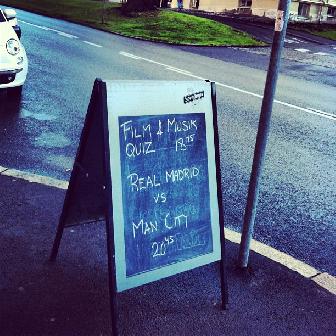 FILM & MUSIK
QUIZ — 18.75
REAL MADRID
VS
MAN CITY
20.45